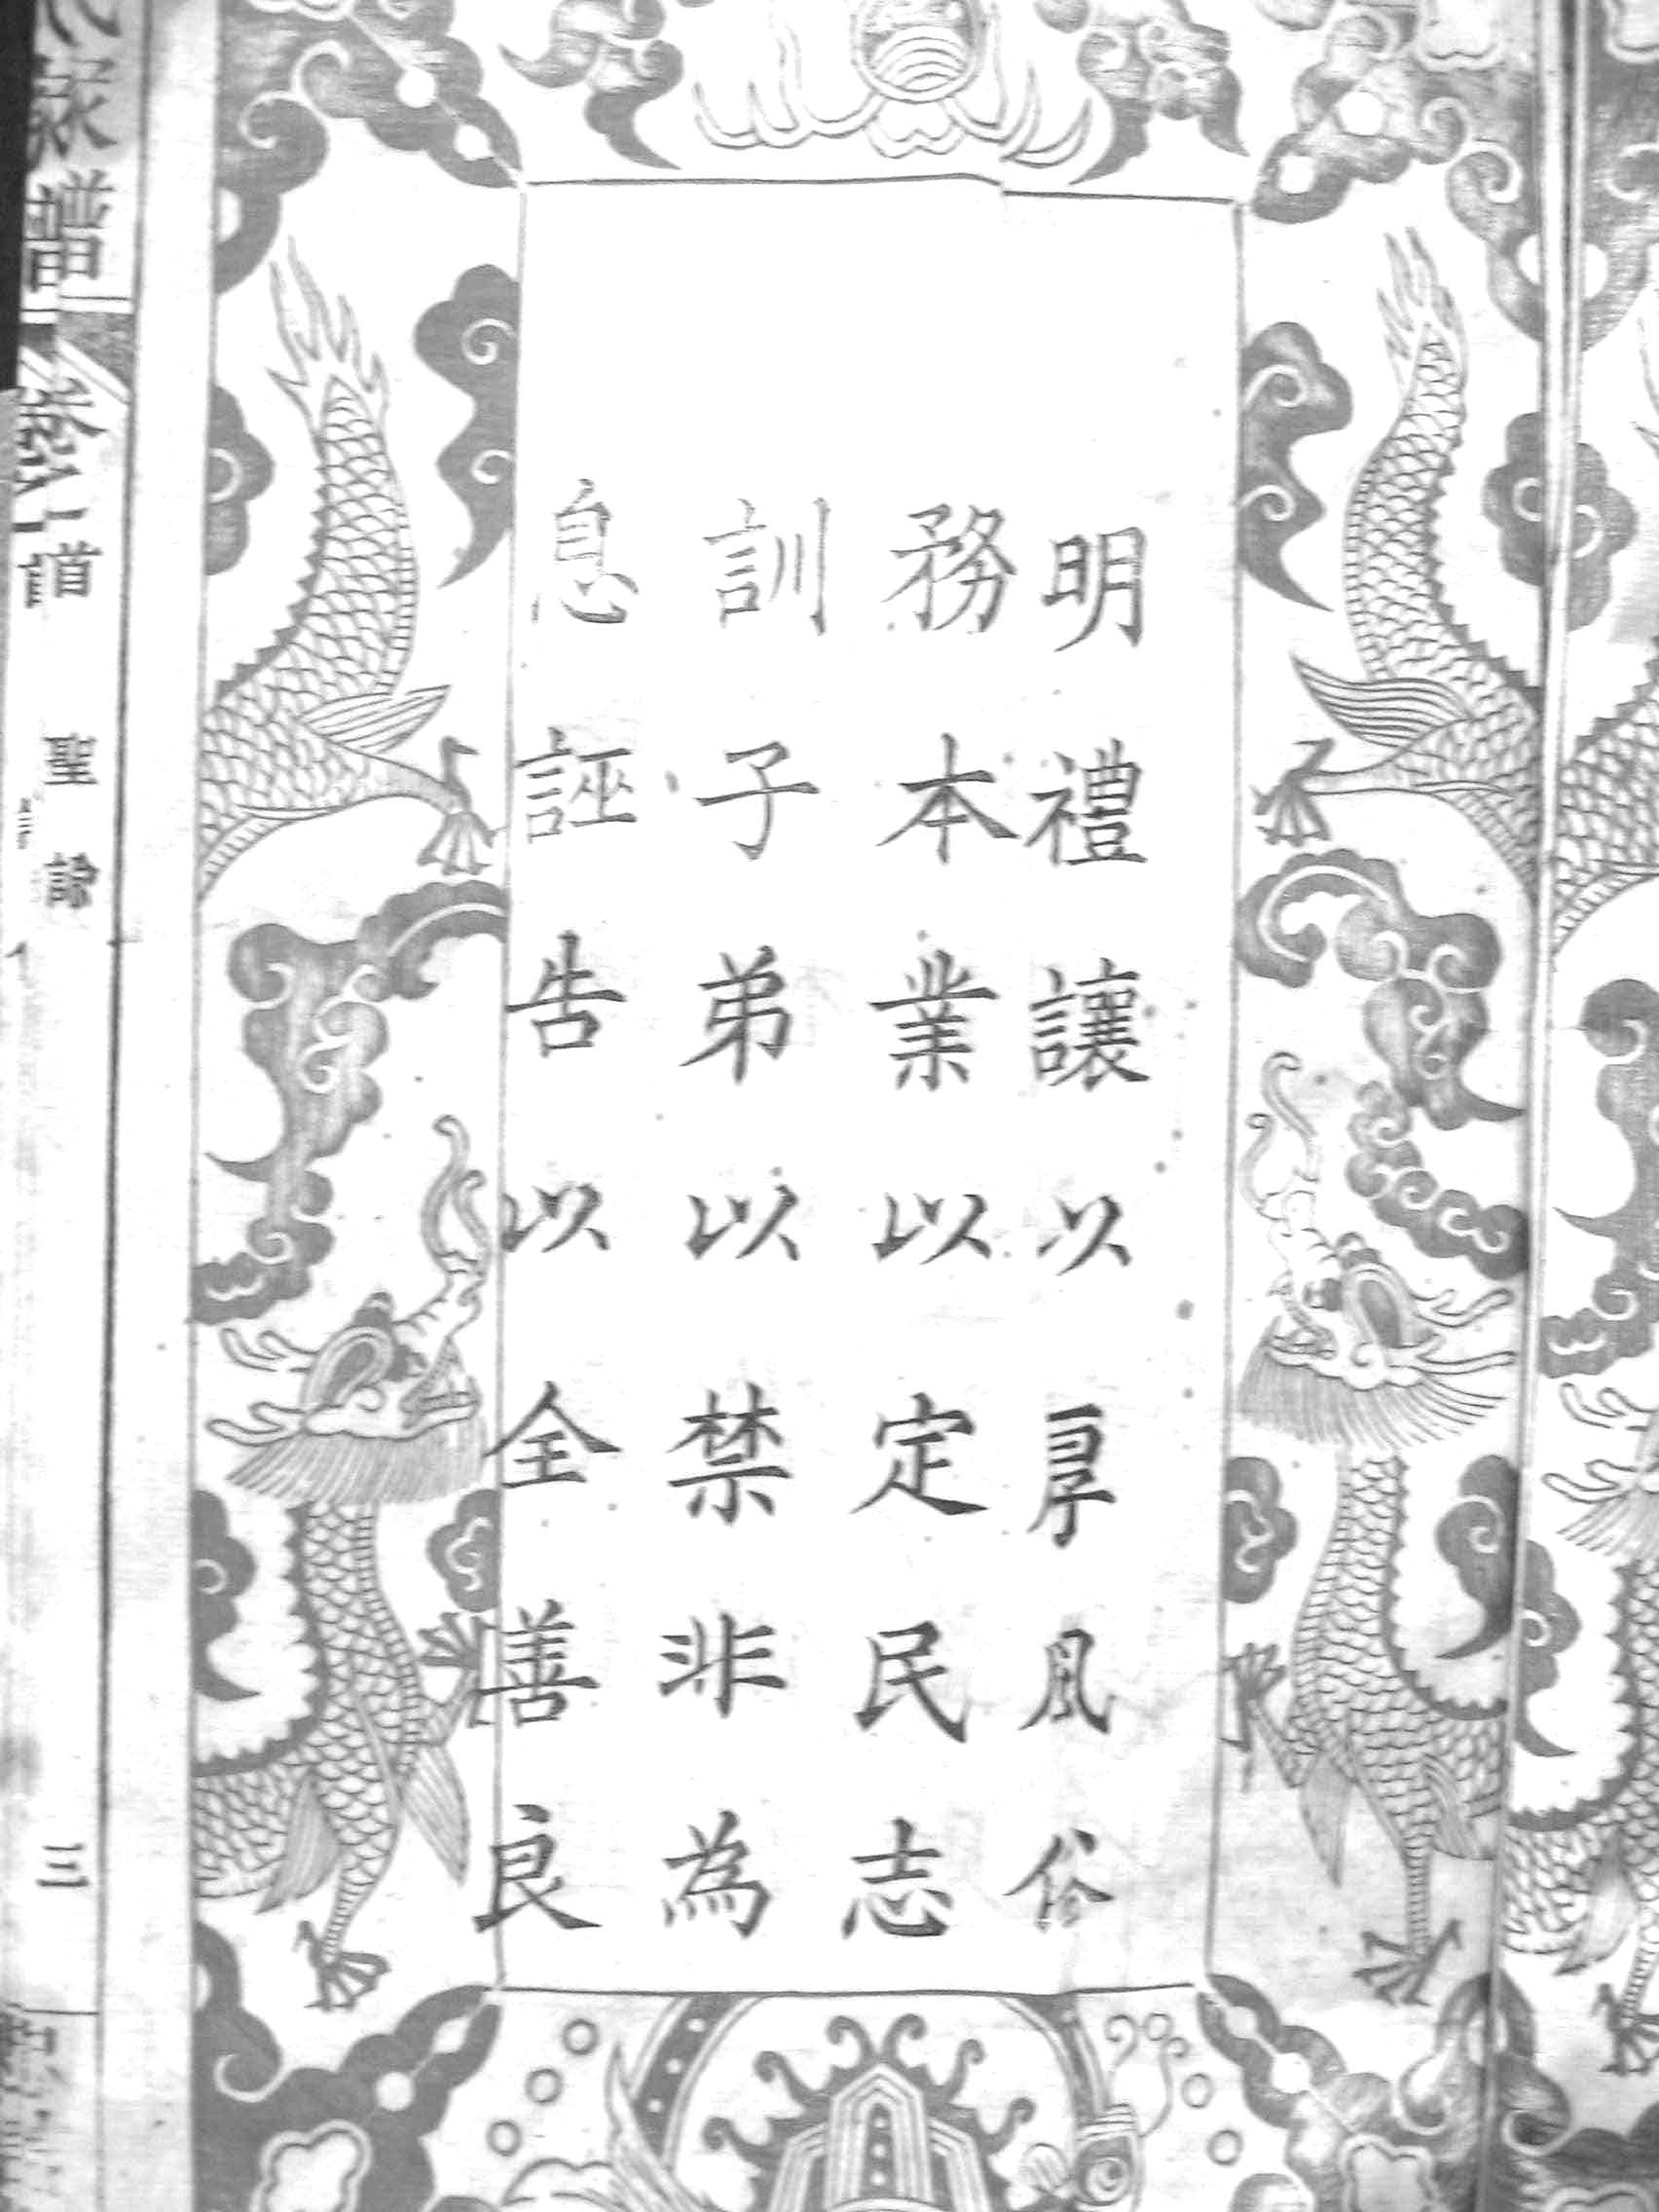 明禮讓以厚風俗
務本業以定民志
訓子弟以禁非為
息誣告以全善良
譜
卷首
聖諭
三